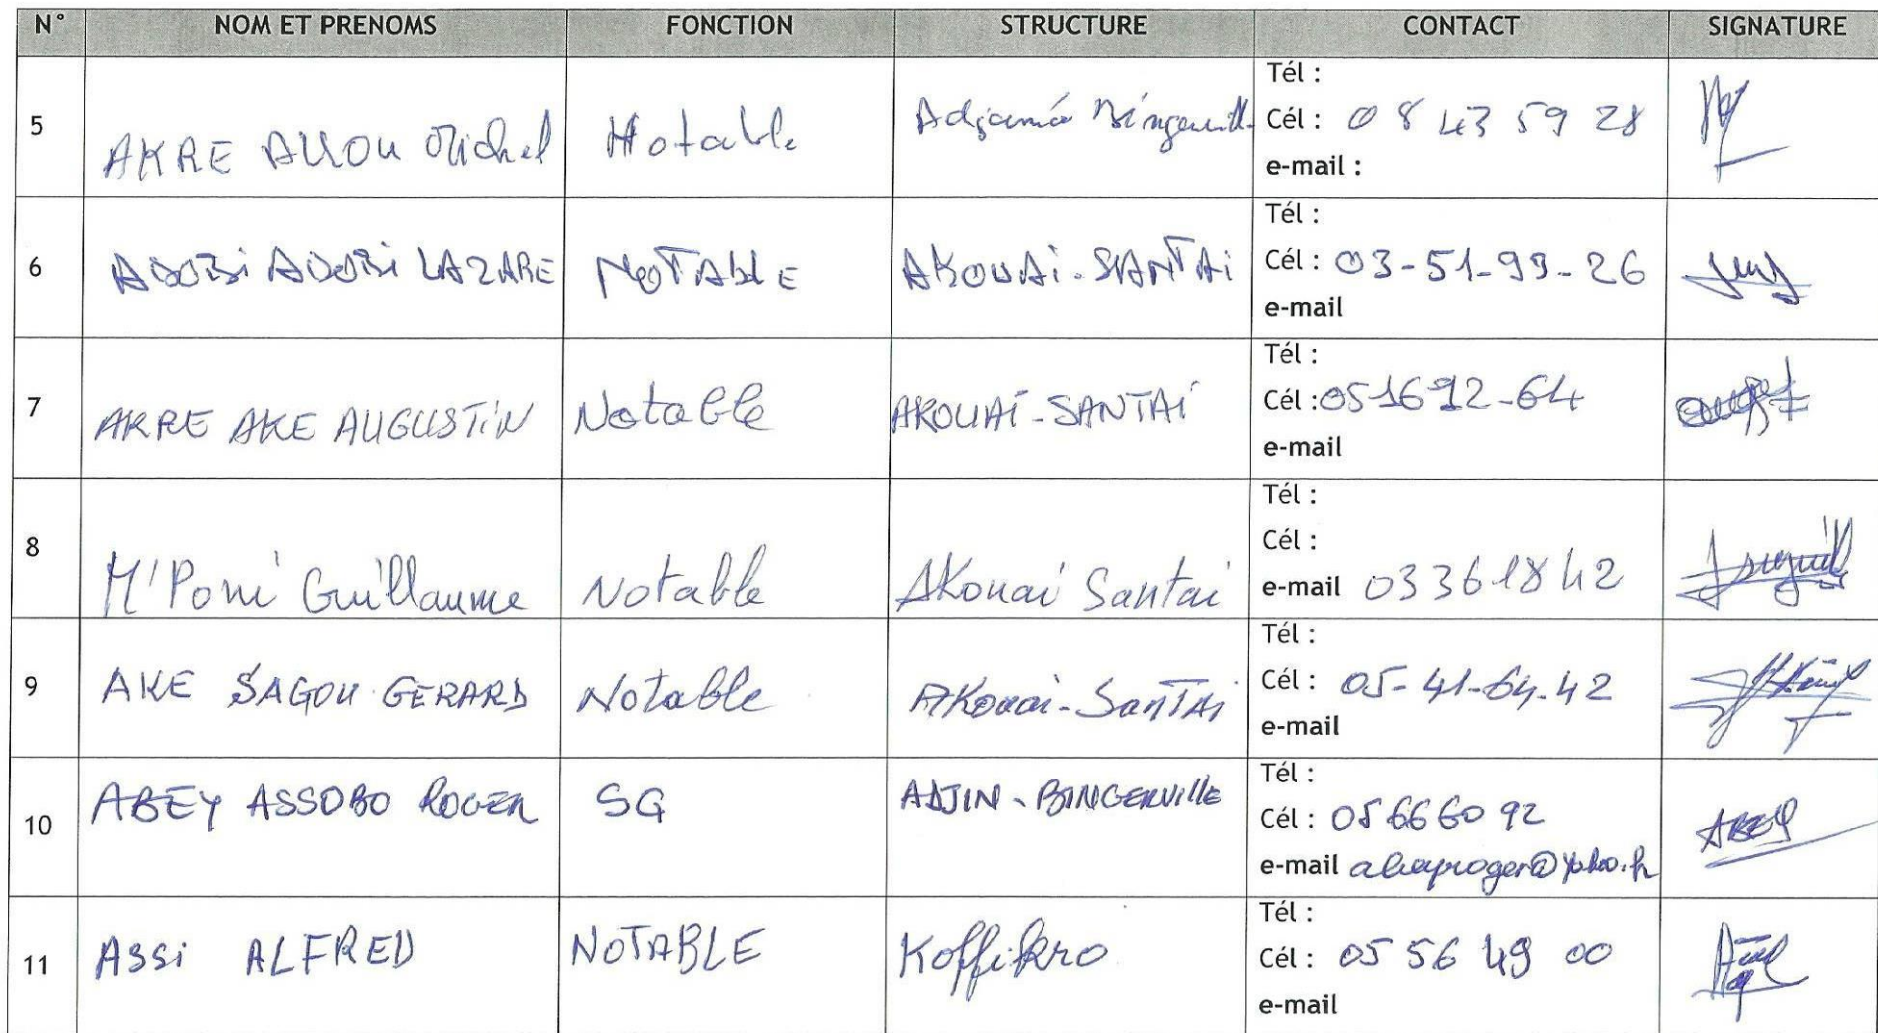 N° NOM ET PRENOMS FONCTION STRUCTURE CONTACT SIGNATURE
5 AKRE ALLOU Michel Notable Adjamé Bingerville
Tél :
Cél : 08 43 59 28
e-mail :
6 ADOBI ADOBI LAZARE NOTABLE AKOUAI-SANTAI
Tél :
Cél : 03-51-99-26
e-mail
7 AKRE AKE AUGUSTIN Notable AKOUAI-SANTAI
Tél :
Cél : 05 16 92-64
e-mail
8 M'Poni Guillaume Notable AKouai Santai
Tél :
Cél :
e-mail 03361842
9 AKE SAGOU GERARD Notable AKouai-SanTAi
Tél :
Cél : 05-41-64-42
e-mail
10 ABEY ASSOBO ROGER SG ADJIN-BINGERVIllE
Tél :
Cél : 05 66 60 92
e-mail abeyroger@yahoo.fr
ABEY
11 ASSi ALFRED NOTABLE Koffikro
Tél :
Cél : 05 56 49 00
e-mail